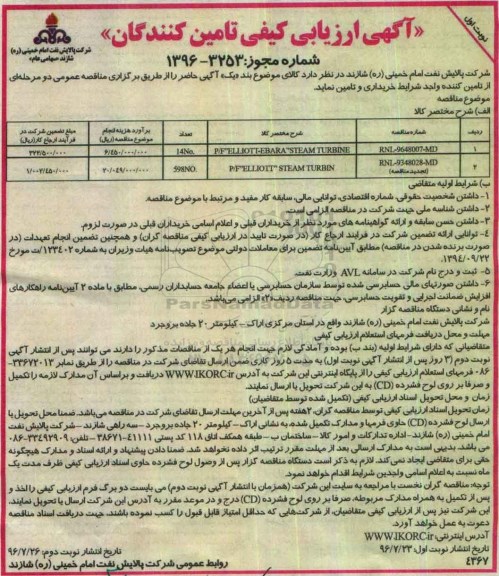 نوبت اول
«آگهی ارزیابی کیفی تامین کنندگان»
شرکت پالایش نفت امام خمینی (ره)
شازند «سهامی عام»
شماره مجوز: ۳۲۵۳- ۱۳۹۶
شرکت پالایش نفت امام خمینی (ره) شازند در نظر دارد کالای موضوع بند «یک» آگهی حاضر را از طریق برگزاری مناقصه عمومی دو مرحله‌ای
از تامین کننده واجد شرایط خریداری و تامین نماید.
موضوع مناقصه
الف) شرح مختصر کالا
ردیف شماره مناقصه شرح مختصر کالا تعداد برآورد هزینه انجام فرآیند کار (ریال) مبلغ تضمین شرکت در فرآیند ارجاع کار (ریال)
۱ RNL-9648007-MD P/F"ELLIOTT-EBARA"STEAM TURBINE 14No. ۶/۴۵۰/۰۰۰/۰۰۰
۲ RNL-9348028-MD (تجدید مناقصه) P/F"ELLIOTT" STEAM TURBIN 598NO. ۲۰/۰۴۹/۰۰۰/۰۰۰ ۱/۰۰۲/۴۵۰/۰۰۰
ب) شرایط اولیه متقاضی
۱- داشتن شخصیت حقوقی، شماره اقتصادی، توانایی مالی، سابقه کار مفید و مرتبط با موضوع مناقصه.
۲- داشتن شناسه ملی جهت شرکت در مناقصه الزامی است.
۳- داشتن حسن سابقه و ارائه گواهینامه های مورد نظر از خریداران قبلی و اعلام اسامی خریداران قبلی در صورت لزوم.
۴- توانایی ارائه تضمین شرکت در فرآیند ارجاع کار (در صورت تایید در ارزیابی کیفی مناقصه گران) و همچنین تضمین انجام تعهدات (در
صورت برنده شدن در مناقصه) مطابق آیین‌نامه تضمین برای معاملات دولتی موضوع تصویب‌نامه هیات وزیران به شماره ۱۲۳۴۰۲/ت مورخ
۱۳۹۴/۰۹/۲۲.
۵- ثبت و درج نام شرکت در سامانه AVL وزارت نفت.
۶- داشتن صورتهای مالی حسابرسی شده توسط سازمان حسابرسی یا اعضاء جامعه حسابداران رسمی، مطابق با ماده ۲ آیین‌نامه راهکارهای
افزایش ضمانت اجرایی و تقویت حسابرسی، جهت مناقصه ردیف «۲» الزامی می‌باشد.
نام و نشانی دستگاه مناقصه گزار
شرکت پالایش نفت امام خمینی (ره) شازند واقع در استان مرکزی اراک- کیلومتر ۲۰ جاده بروجرد
مهلت و محل دریافت فرمهای استعلام ارزیابی کیفی
متقاضیانی که دارای شرایط اولیه (بند ب) بوده و آمادگی لازم جهت انجام هر یک از مناقصات مذکور را دارند می توانند پس از انتشار آگهی
نوبت دوم (۳ روز پس از انتشار آگهی نوبت اول) به مدت ۵ روز کاری ضمن ارسال تقاضای شرکت در مناقصه را از طریق نمابر ۳۳۶۷۲۰۱۳-
۰۸۶ فرمهای استعلام ارزیابی کیفی را از پایگاه اینترنتی این شرکت به آدرس WWW.IKORC.ir دریافت و براساس آن مدارک لازمه را تکمیل
و صرفا بر روی لوح فشرده (CD) به این شرکت تحویل یا ارسال نمایند.
زمان و محل تحویل اسناد ارزیابی کیفی (تکمیل شده توسط متقاضیان)
زمان تحویل اسناد ارزیابی کیفی توسط مناقصه گران، ۲ هفته پس از آخرین مهلت ارسال تقاضای شرکت در مناقصه می‌باشد. ضمنا محل تحویل یا
ارسال لوح فشرده (CD) حاوی فرمها و مدارک تکمیل شده، به نشانی اراک- کیلومتر ۲۰ جاده بروجرد- سه راهی شازند- شرکت پالایش نفت
امام خمینی (ره) شازند- اداره تدارکات و امور کالا- ساختمان ب- طبقه همکف اتاق ۱۱۸ کد پستی ۴۱۱۱۱-۳۸۶۷۱ - تلفن ۳۳۴۹۲۹۰۹-۰۸۶
می باشد. بدیهی است به مدارک ارسالی بعد از مهلت مقرر ترتیب اثر داده نخواهد شد. ضمنا دادن پیشنهاد و ارائه اسناد و مدارک هیچگونه
حقی برای متقاضی ایجاد نمی‌کند. لازم به ذکر است دستگاه مناقصه گزار پس از وصول لوح فشرده حاوی اسناد ارزیابی کیفی ظرف مدت یک
ماه نسبت به اعلام اسامی واجدین شرایط اقدام خواهد نمود.
توجه: مناقصه گران نخست با مراجعه به سایت این شرکت، (همزمان با انتشار آگهی نوبت دوم) می بایست دو برگ فرم ارزیابی کیفی را اخذ و
پس از تکمیل به همراه مدارک مربوطه، صرفا بر روی لوح فشرده (CD) درج و در موعد مقرر به آدرس این شرکت ارسال یا تحویل نمایند.
این شرکت نیز پس از ارزیابی کیفی متقاضیان، از شرکت‌هایی که حداقل امتیاز قابل قبول را کسب نموده باشند، جهت دریافت اسناد مناقصه
دعوت به عمل خواهد آورد.
آدرس اینترنتی: WWW.IKORC.ir
تاریخ انتشار نوبت اول: ۹۶/۷/۲۳ تاریخ انتشار نوبت دوم: ۹۶/۷/۲۶
۴۳۶۷ روابط عمومی شرکت پالایش نفت امام خمینی (ره) شازند